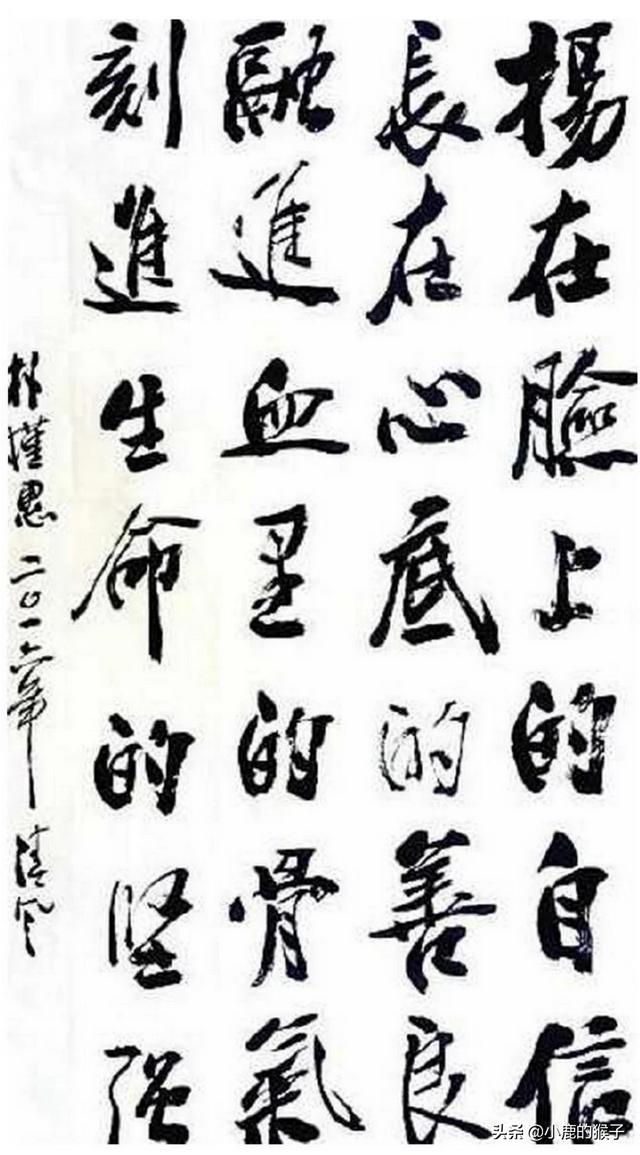 揚在臉上的自信
長在心底的善良
融進血里的骨氣
刻進生命的坚强
朴槿 二〇一六年 清风
头条 @小鹿的猴子